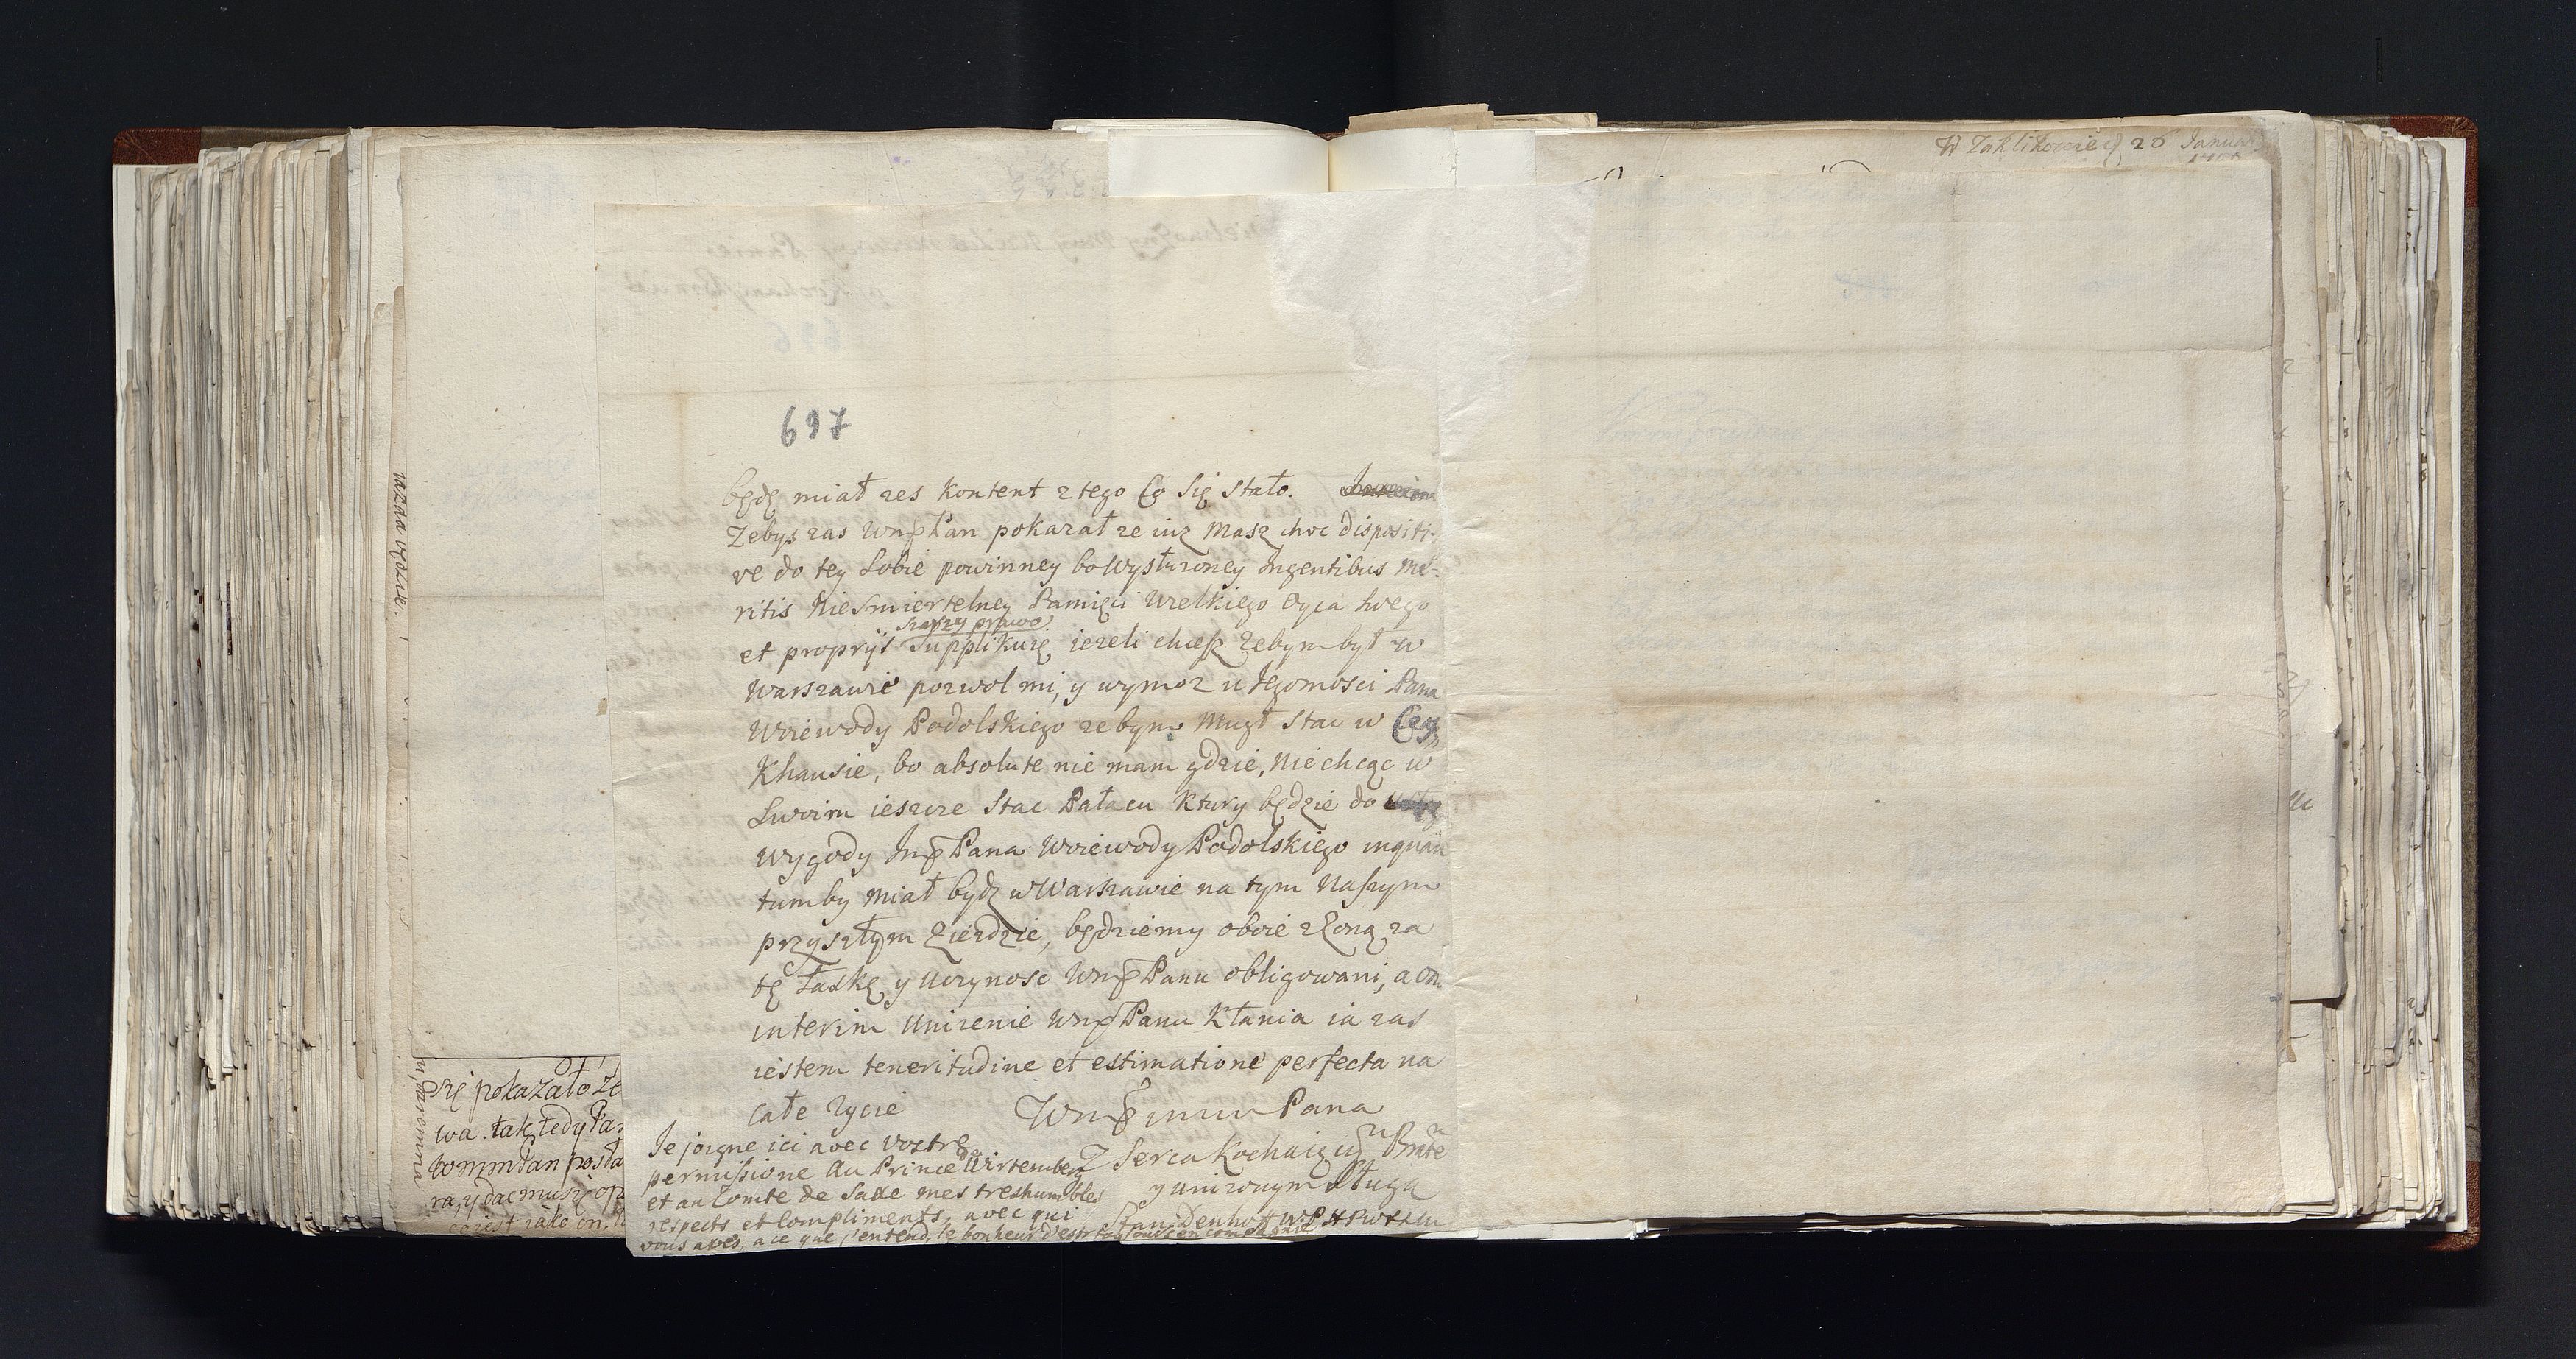 W Zaklikowie d 26 Januarii
697
będę miał zes kontent z tego Co Się Stało.
Zebys zas WmPan pokazał ze iuz Masz choc dispositi-
ve do tey Sobie powinney bo wysłuzoney Ingentibus me-
ritis Niesmiertelney Pamięci Wielkiego Oyca swego
szarzy prawo
et proprijs Supplikuię, iezeli chcesz zebym był w
Warszawie pozwol mi, y wymoz u Jegomosci Pana
Woiewody Podolskiego zebym mugł Stac w
Khausie, bo absolute nie mam gdzie, Niechcąc w
Swoim ieszcze Stac Pałacu Ktury będzie do
wygody Jmp Pana Woiewody Podolskiego inquan
tumby miał bydz w Warszawie na tym Naszym
przyszłym Ziezdzie, będziemy oboie z Zoną za
tę Łaskę y Uczynosc Wmp Panu obligowani, a ona
interim Unizenie Wmp Panu Kłania ia zas
iestem teneritudine et estimatione perfecta na
całe zycie Wmp mmm Pana
Z Serca Kochaiącym Bratē
y unizonym Sługą
Stan Denhoff W:P H P W X Lit
Je joigne ici avec vostre
permissione au Prince de Wirtemberg
et au Comte de Saxe mes treshumbles
respects et Compliments, avec qui
vous avés, a ce que j'entend, le bonheur d'estre tousiours en compagnie
każda będzie.
daremna
się pokazało ze
wa. tak tedy Pa
Wmm Pan posła
ra, y dac musi op
co iest iako on,